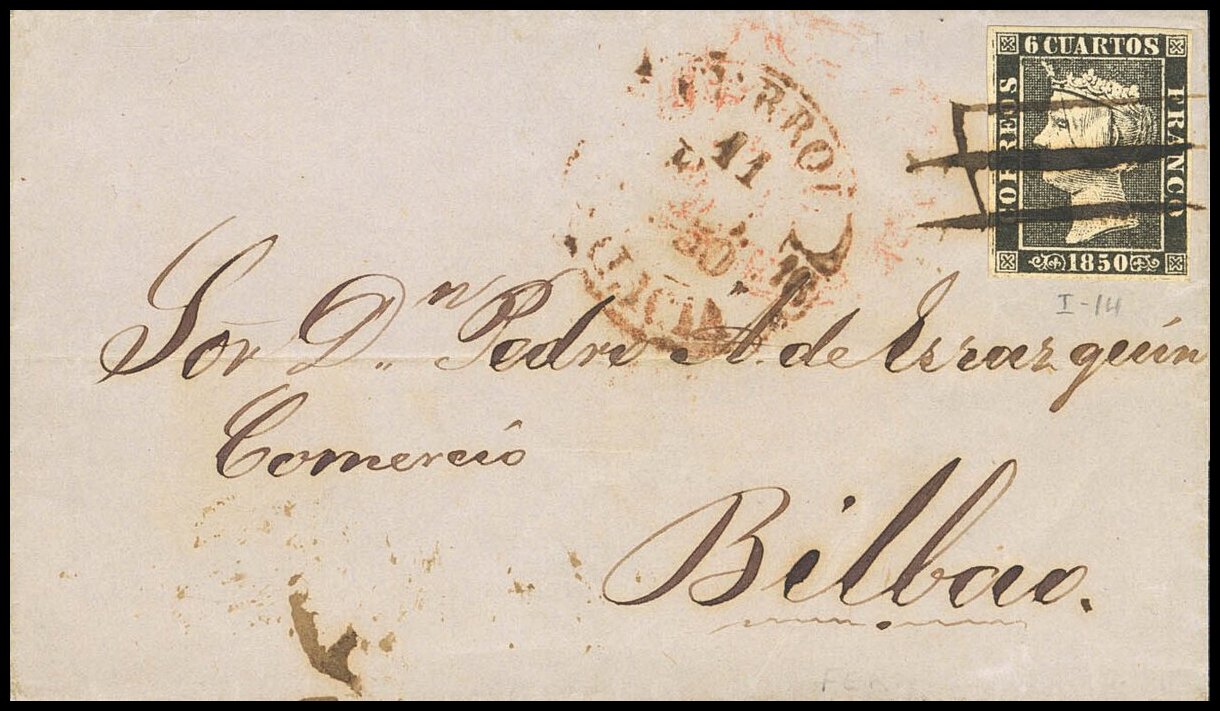 6 CUARTOS
CORREOS
FRANCO
1850
I-14
FERROL
11
50
GALICIA
Sor D.n Pedro A. de Errazquin
Comercio
Bilbao.
FER